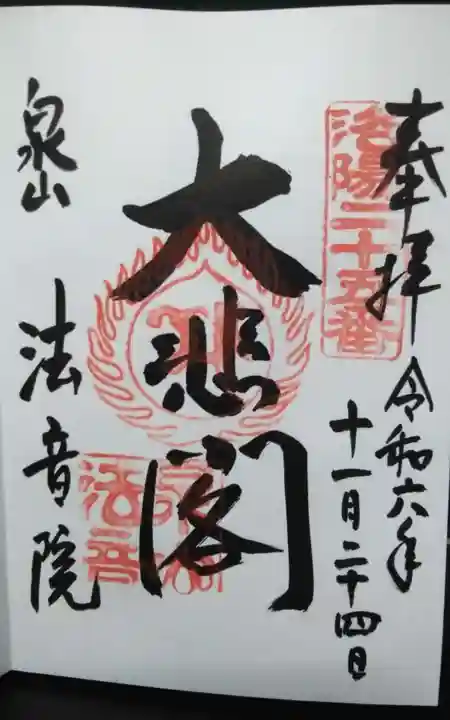 奉拝
洛陽二十五番
令和六年
十一月二十四日
大悲閣
泉山
法音院